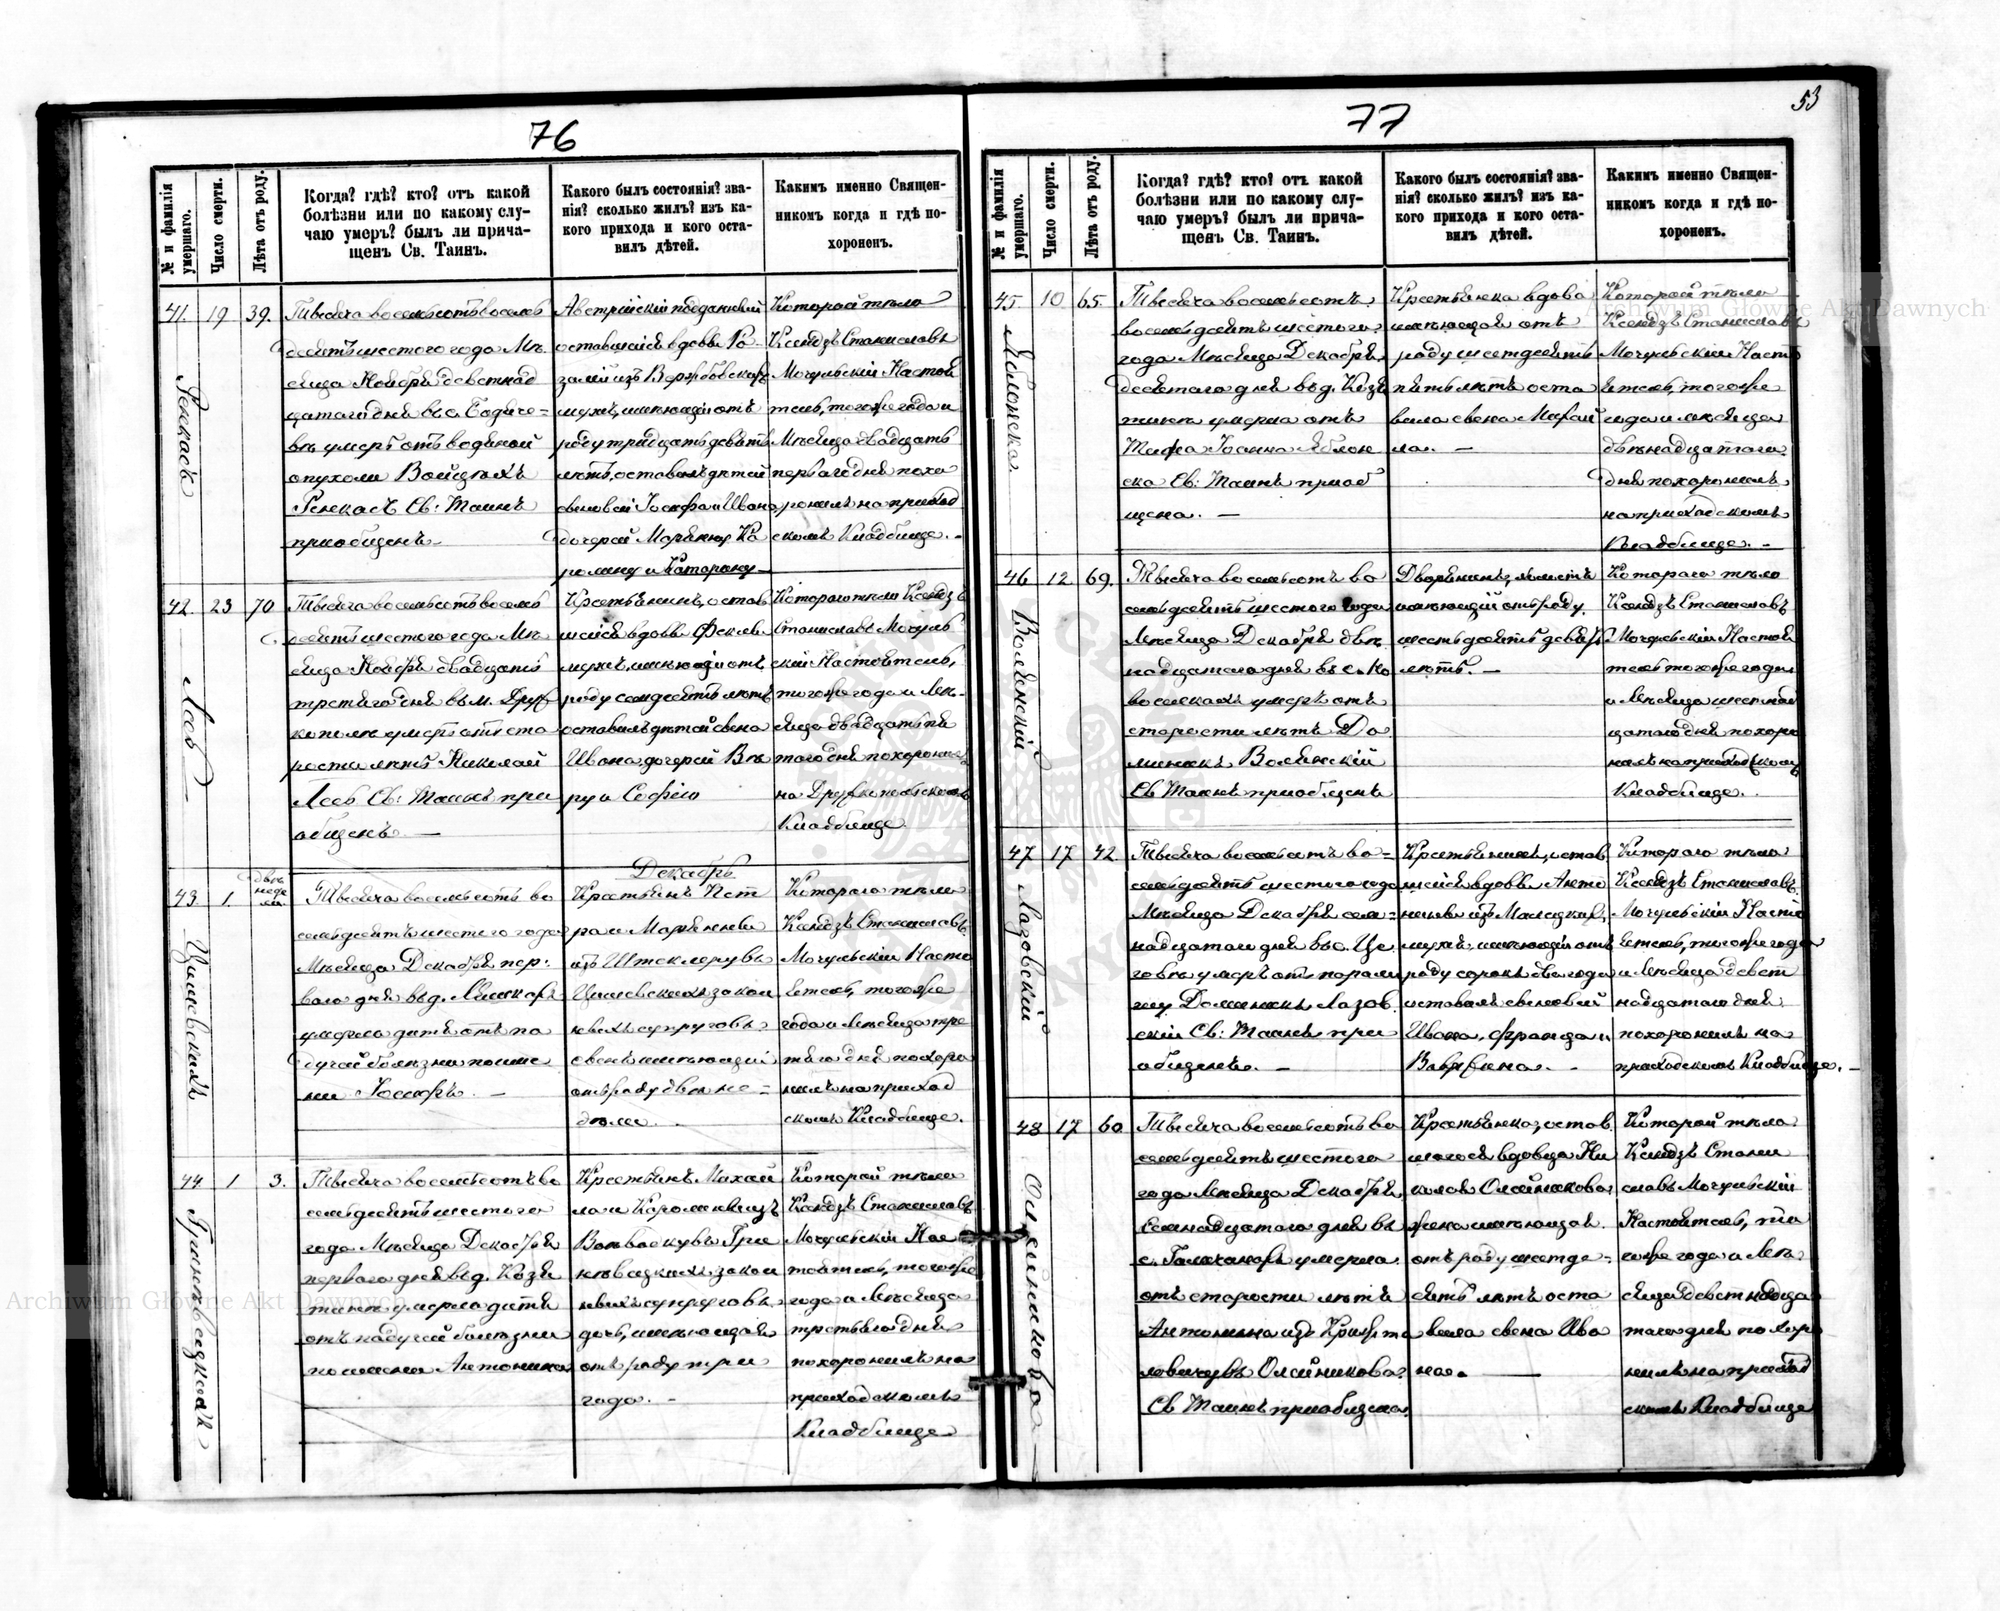 53
76
№ и фамилія умершаго.
Число смерти.
Лѣта отъ роду.
Когда? гдѣ? кто? отъ какой
болѣзни или по какому слу-
чаю умеръ? былъ ли прича-
щенъ Св. Таинъ.
Какого былъ состоянія? зва-
нія? сколько жилъ? изъ ка-
кого прихода и кого оста-
вилъ дѣтей.
Каким именно Священ-
никомъ когда и гдѣ по-
хороненъ.
41. 19 39.
Тысяча восемьсотъ восемь
десятъ шестого года Мѣ
сяца Ноября девятнад
цатаго дня въ с.
въ умеръ отъ водяной
опухоли Войцѣхъ
Св: Таинъ
приобщенъ
Австрійскій подданный
оставшійся вдовы Ро
заліи изъ
мужъ, имѣющій отъ
роду тридцать девять
лѣтъ, оставилъ дѣтей
сыновей Іосифа и Ивана
дочерей Марянну, Ка
ролину и Катарину
Которой тѣло
Ксендзъ Станиславъ
Мочульскій Настоя
тель, того же года и
Мѣсяца двадцать
перваго дня похо
ронилъ на приход
скомъ Кладбище.
42. 23 70
Лсеб
Тысяча восемьсотъ восемь
десятъ шестого года Мѣ
сяца Ноября двадцать
третяго дня въ м. Друж
кополѣ умеръ отъ ста
рости лѣтъ Николай
Лсеб Св: Таинъ при
общенъ
Крестьянинъ, остав
шійся вдовы Феклы
мужъ, имѣющій отъ
роду семдесятъ лѣтъ
оставилъ дѣтей сына
Ивана дочерей Вѣ
ру и Софію
Которого тѣло Ксендзъ
Станиславъ Мочуль
скій Настоятель,
того же года и Мѣ-
сяца двадцать пя
того дня похоронилъ
на Дружкопольскомъ
Кладбище.
Декабрь
43. 1. двѣ недѣли
Цишевскихъ
Тысяча восемьсотъ во
семьдесятъ шестого года
Мѣсяца Декабря пер-
ваго дня въ д.
умерло дитя отъ па
дучей болѣзни по име
ни Іосифъ.
Крестьянъ Пет
ра и Марянны
изъ
Цишевскихъ закон
ныхъ супруговъ
сынъ имѣющій
отъ роду двѣ не-
дѣли.
Которого тѣло
Ксендзъ Станиславъ
Мочульскій Насто
ятель, того же
года и Мѣсяца тре
тяго дня похоро
нилъ на приход
скомъ Кладбище.
44. 1 3.
Гриневецкихъ
Тысяча восемьсотъ во
семьдесятъ шестого
года Мѣсяца Декабря
перваго дня въ д. Козя
тинѣ умерло дитя
отъ падучей болѣзни
по имени Антонина
Крестьянъ Михаи
ла и Каролины изъ
Гри
невецкихъ закон
ныхъ супруговъ
дочь, имѣющая
отъ роду три
года.
Которой тѣло
Ксендзъ Станиславъ
Мочульскій Нас
тоятель, того же
года и Мѣсяца
третьяго дня
похоронилъ на
приходскомъ
Кладбище
77
№ и фамилія умершаго.
Число смерти.
Лѣта отъ роду.
Когда? гдѣ? кто? отъ какой
болѣзни или по какому слу-
чаю умеръ? былъ ли прича-
щенъ Св. Таинъ.
Какого былъ состоянія? зва-
нія? сколько жилъ? изъ ка-
кого прихода и кого оста-
вилъ дѣтей.
Каким именно Священ-
никомъ когда и гдѣ по-
хороненъ.
45. 10 65.
Яблонска
Тысяча восемьсотъ
восемьдесятъ шестого
года Мѣсяца Декабря
десятаго дня въ д. Козя
тинѣ умерла отъ
Тифа Іоанна Яблон
ска Св: Таинъ приоб
щена.
Крестьянка вдова
имѣющая отъ
роду шестдесятъ
пять лѣтъ оста
вила сына Михаи
ла.
Которой тѣло
Ксендзъ Станиславъ
Мочульскій Насто
ятель, того же
года и мѣсяца
двѣнадцатаго
дня похоронилъ
на приходскомъ
Кладбище.
46 12 69.
Волынскій
Тысяча восемьсотъ во
семьдесятъ шестого года
Мѣсяца Декабря двѣ
надцатаго дня въ с. Ко
восилкахъ умеръ отъ
старости лѣтъ До
миникъ Волынскій
Св Таинъ приобщенъ
Дворянинъ,
имѣющій отъ роду
шестьдесятъ девять
лѣтъ.
Котораго тѣло
Ксендзъ Станиславъ
Мочульскій Настоя
тель того же года
и Мѣсяца шестнад
цатаго дня похоро
нилъ на приходском
Кладбище.
47 17 42.
Лазовскій
Тысяча восемьсотъ во-
семьдесятъ шестого года
Мѣсяца Декабря сем-
надцатаго дня въ с. Це
говѣ умеръ отъ парали
чу Доминикъ Лазов
скій Св: Таинъ при
общенъ.
Крестьянинъ, остав
шійся вдовы Анто
нины изъ
мужъ, имѣющій отъ
роду сорокъ два года
оставилъ сыновей
Ивана, Франца и
Которого тѣло
Ксендзъ Станиславъ
Мочульскій Насто
ятель, того же года
и Мѣсяца девят
надцатаго дня
похоронилъ на
приходскомъ Кладбище.
48 17 60
Олейникова
Тысяча восемьсотъ во
семьдесятъ шестого
года Мѣсяца Декабря
семнадцатаго дня въ
с. Галичанахъ умерла
отъ старости лѣтъ
Антонина изъ
Олейникова
Св Таинъ приобщена.
Крестьянка, остав
шагося вдовца Ни
колая Олейникова
жена имѣющая
отъ роду шестде-
сятъ лѣтъ оста
вила сына Ива
на.
Которой тѣло
Ксендзъ Стани
славъ Мочульскій
Настоятель, то
гоже года и Мѣ
сяца девятнадца
таго дня похоро
нилъ на приход
скомъ Кладбище
Archiwum Główne Akt Dawnych
Archiwum Główne Akt Dawnych